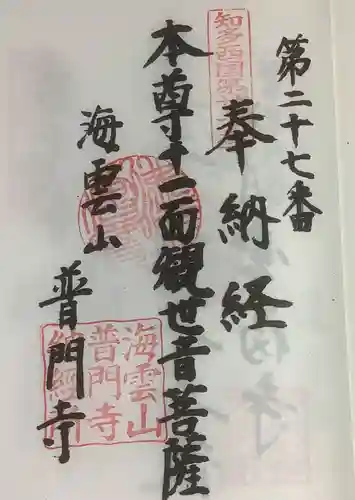 第二十七番
奉納経
知多西国
本尊十一面観世音菩薩
海雲山
普門寺
海雲山
普門寺
納経